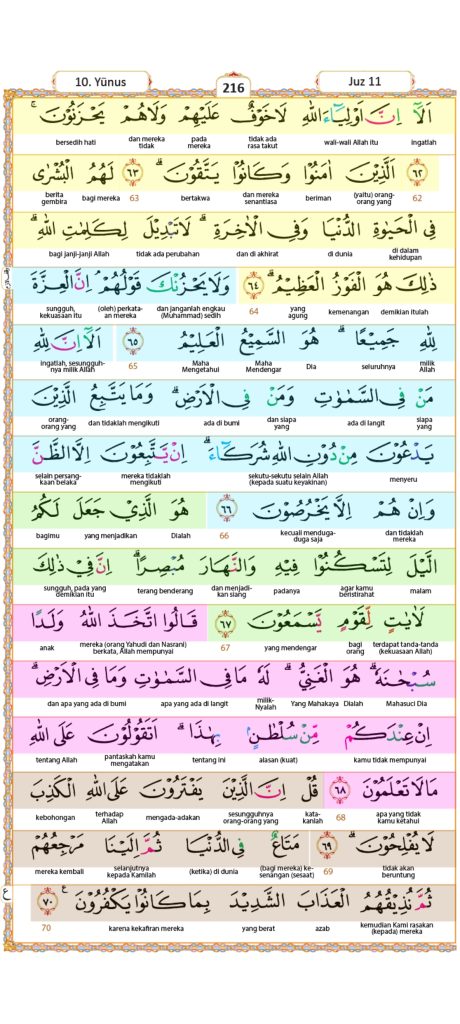 10. Yūnus
216
Juz 11
اَلَآ اِنَّ اَوْلِيَاۤءَ اللّٰهِ لَا خَوْفٌ عَلَيْهِمْ وَلَا هُمْ يَحْزَنُوْنَۚ
ingatlah wali-wali Allah itu tidak ada rasa takut pada mereka dan mereka tidak bersedih hati
٦٢ اَلَّذِيْنَ اٰمَنُوْا وَكَانُوْا يَتَّقُوْنَۗ ٦٣ لَهُمُ الْبُشْرٰى
62 (yaitu) orang-orang yang beriman dan mereka senantiasa bertakwa 63 bagi mereka berita gembira
فِى الْحَيٰوةِ الدُّنْيَا وَفِى الْاٰخِرَةِۗ لَا تَبْدِيْلَ لِكَلِمٰتِ اللّٰهِۗ
di dalam kehidupan di dunia dan di akhirat tidak ada perubahan bagi janji-janji Allah
ذٰلِكَ هُوَ الْفَوْزُ الْعَظِيْمُۗ ٦٤ وَلَا يَحْزُنْكَ قَوْلُهُمْۘ اِنَّ الْعِزَّةَ
demikian itulah kemenangan yang agung 64 dan janganlah engkau (Muhammad) sedih (oleh) perkataan mereka sungguh, kekuasaan itu
لِلّٰهِ جَمِيْعًاۗ هُوَ السَّمِيْعُ الْعَلِيْمُ ٦٥ اَلَآ اِنَّ لِلّٰهِ
milik Allah seluruhnya Dia Maha Mendengar Maha Mengetahui 65 ingatlah, sesungguh-nya milik Allah
مَنْ فِى السَّمٰوٰتِ وَمَنْ فِى الْاَرْضِۗ وَمَا يَتَّبِعُ الَّذِيْنَ
siapa yang ada di langit dan siapa yang ada di bumi dan tidaklah mengikuti orang-orang yang
يَدْعُوْنَ مِنْ دُوْنِ اللّٰهِ شُرَكَاۤءَۗ اِنْ يَّتَّبِعُوْنَ اِلَّا الظَّنَّ
menyeru sekutu-sekutu selain Allah (kepada suatu keyakinan) mereka tidaklah mengikuti selain persang-kaan belaka
وَاِنْ هُمْ اِلَّا يَخْرُصُوْنَ ٦٦ هُوَ الَّذِيْ جَعَلَ لَكُمُ
dan tidaklah mereka kecuali menduga-duga saja 66 Dialah yang menjadikan bagimu
الَّيْلَ لِتَسْكُنُوْا فِيْهِ وَالنَّهَارَ مُبْصِرًاۗ اِنَّ فِيْ ذٰلِكَ
malam agar kamu beristirahat padanya dan menjadi-kan siang terang benderang sungguh, pada yang demikian itu
لَاٰيٰتٍ لِّقَوْمٍ يَّسْمَعُوْنَ ٦٧ قَالُوا اتَّخَذَ اللّٰهُ وَلَدًا
terdapat tanda-tanda (kekuasaan Allah) bagi orang yang mendengar 67 mereka (orang Yahudi dan Nasrani) berkata, Allah mempunyai anak
سُبْحٰنَهٗۗ هُوَ الْغَنِيُّۗ لَهٗ مَا فِى السَّمٰوٰتِ وَمَا فِى الْاَرْضِۗ
Mahasuci Dia Dialah Yang Mahakaya milik-Nyalah apa yang ada di langit dan apa yang ada di bumi
اِنْ عِنْدَكُمْ مِّنْ سُلْطٰنٍۢ بِهٰذَاۗ اَتَقُوْلُوْنَ عَلَى اللّٰهِ
kamu tidak mempunyai alasan (kuat) tentang ini pantaskah kamu mengatakan tentang Allah
مَا لَا تَعْلَمُوْنَ ٦٨ قُلْ اِنَّ الَّذِيْنَ يَفْتَرُوْنَ عَلَى اللّٰهِ الْكَذِبَ
apa yang tidak kamu ketahui 68 kata-kanlah sesungguhnya orang-orang yang mengada-adakan terhadap Allah kebohongan
لَا يُفْلِحُوْنَۗ ٦٩ مَتَاعٌ فِى الدُّنْيَا ثُمَّ اِلَيْنَا مَرْجِعُهُمْ
tidak akan beruntung 69 (bagi mereka) ke-senangan (sesaat) (ketika) di dunia selanjutnya kepada Kamilah mereka kembali
ثُمَّ نُذِيْقُهُمُ الْعَذَابَ الشَّدِيْدَ بِمَا كَانُوْا يَكْفُرُوْنَ ࣖ ٧٠
kemudian Kami rasakan (kepada) mereka azab yang berat karena kekafiran mereka 70
ع